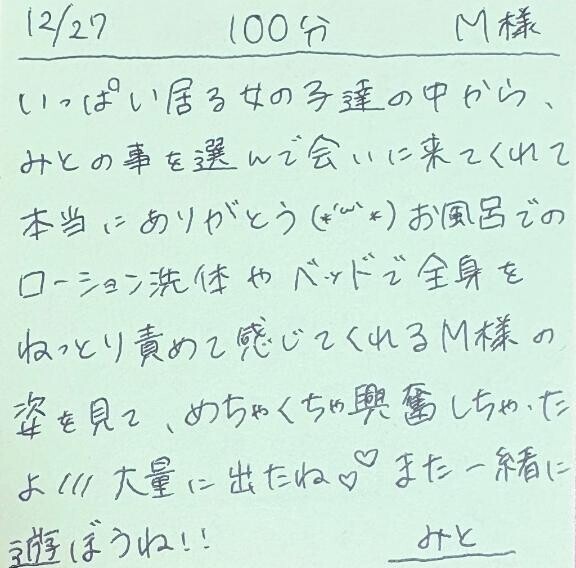 12/27 100分 M様
いっぱい居る女の子達の中から、
みとの事を選んで会いに来てくれて
本当にありがとう(*'ω'*)お風呂での
ローション洗体やベッドで全身を
ねっとり責めて感じてくれるM様の
姿を見て、めちゃくちゃ興奮しちゃった
よ///大量に出たね♡♡また一緒に
遊ぼうね!!
みと